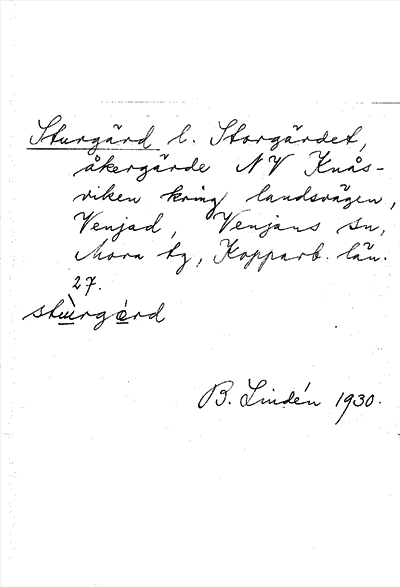 Sturgärd l. Storgärdet,
åkergärde NV Knås-
viken kring landsvägen,
Venjad, Venjans sn,
Mora tg, Kopparb. län.
27.
stù̲rge̲rd
B. Lindén 1930.